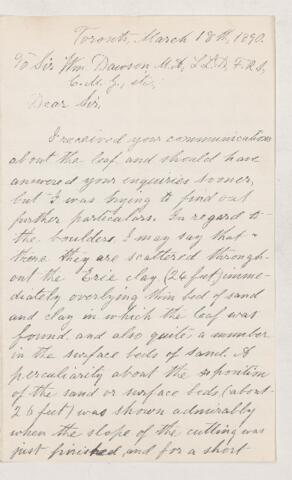 Toronto, March 18th, 1890.
To Sir Wm Dawson M.A, L.L.D, F.R.S,
C.M.G., etc;
Dear Sir,
I received your communications
about the leaf and should have
answered your enquiries sooner,
but I was trying to find out
further particulars. In regard to
the boulders, I may say that
there they are scattered through-
out the Erie clay (24 feet) imme-
diately overlying thin bed of sand
and clay in which the leaf was
found, and also quite a number
in the surface beds of sand. A
peculiarity about the deposition
of the sand or surface beds, (about
26 feet) was shown admirably
when the slope of the cutting was
just finished, and for a short